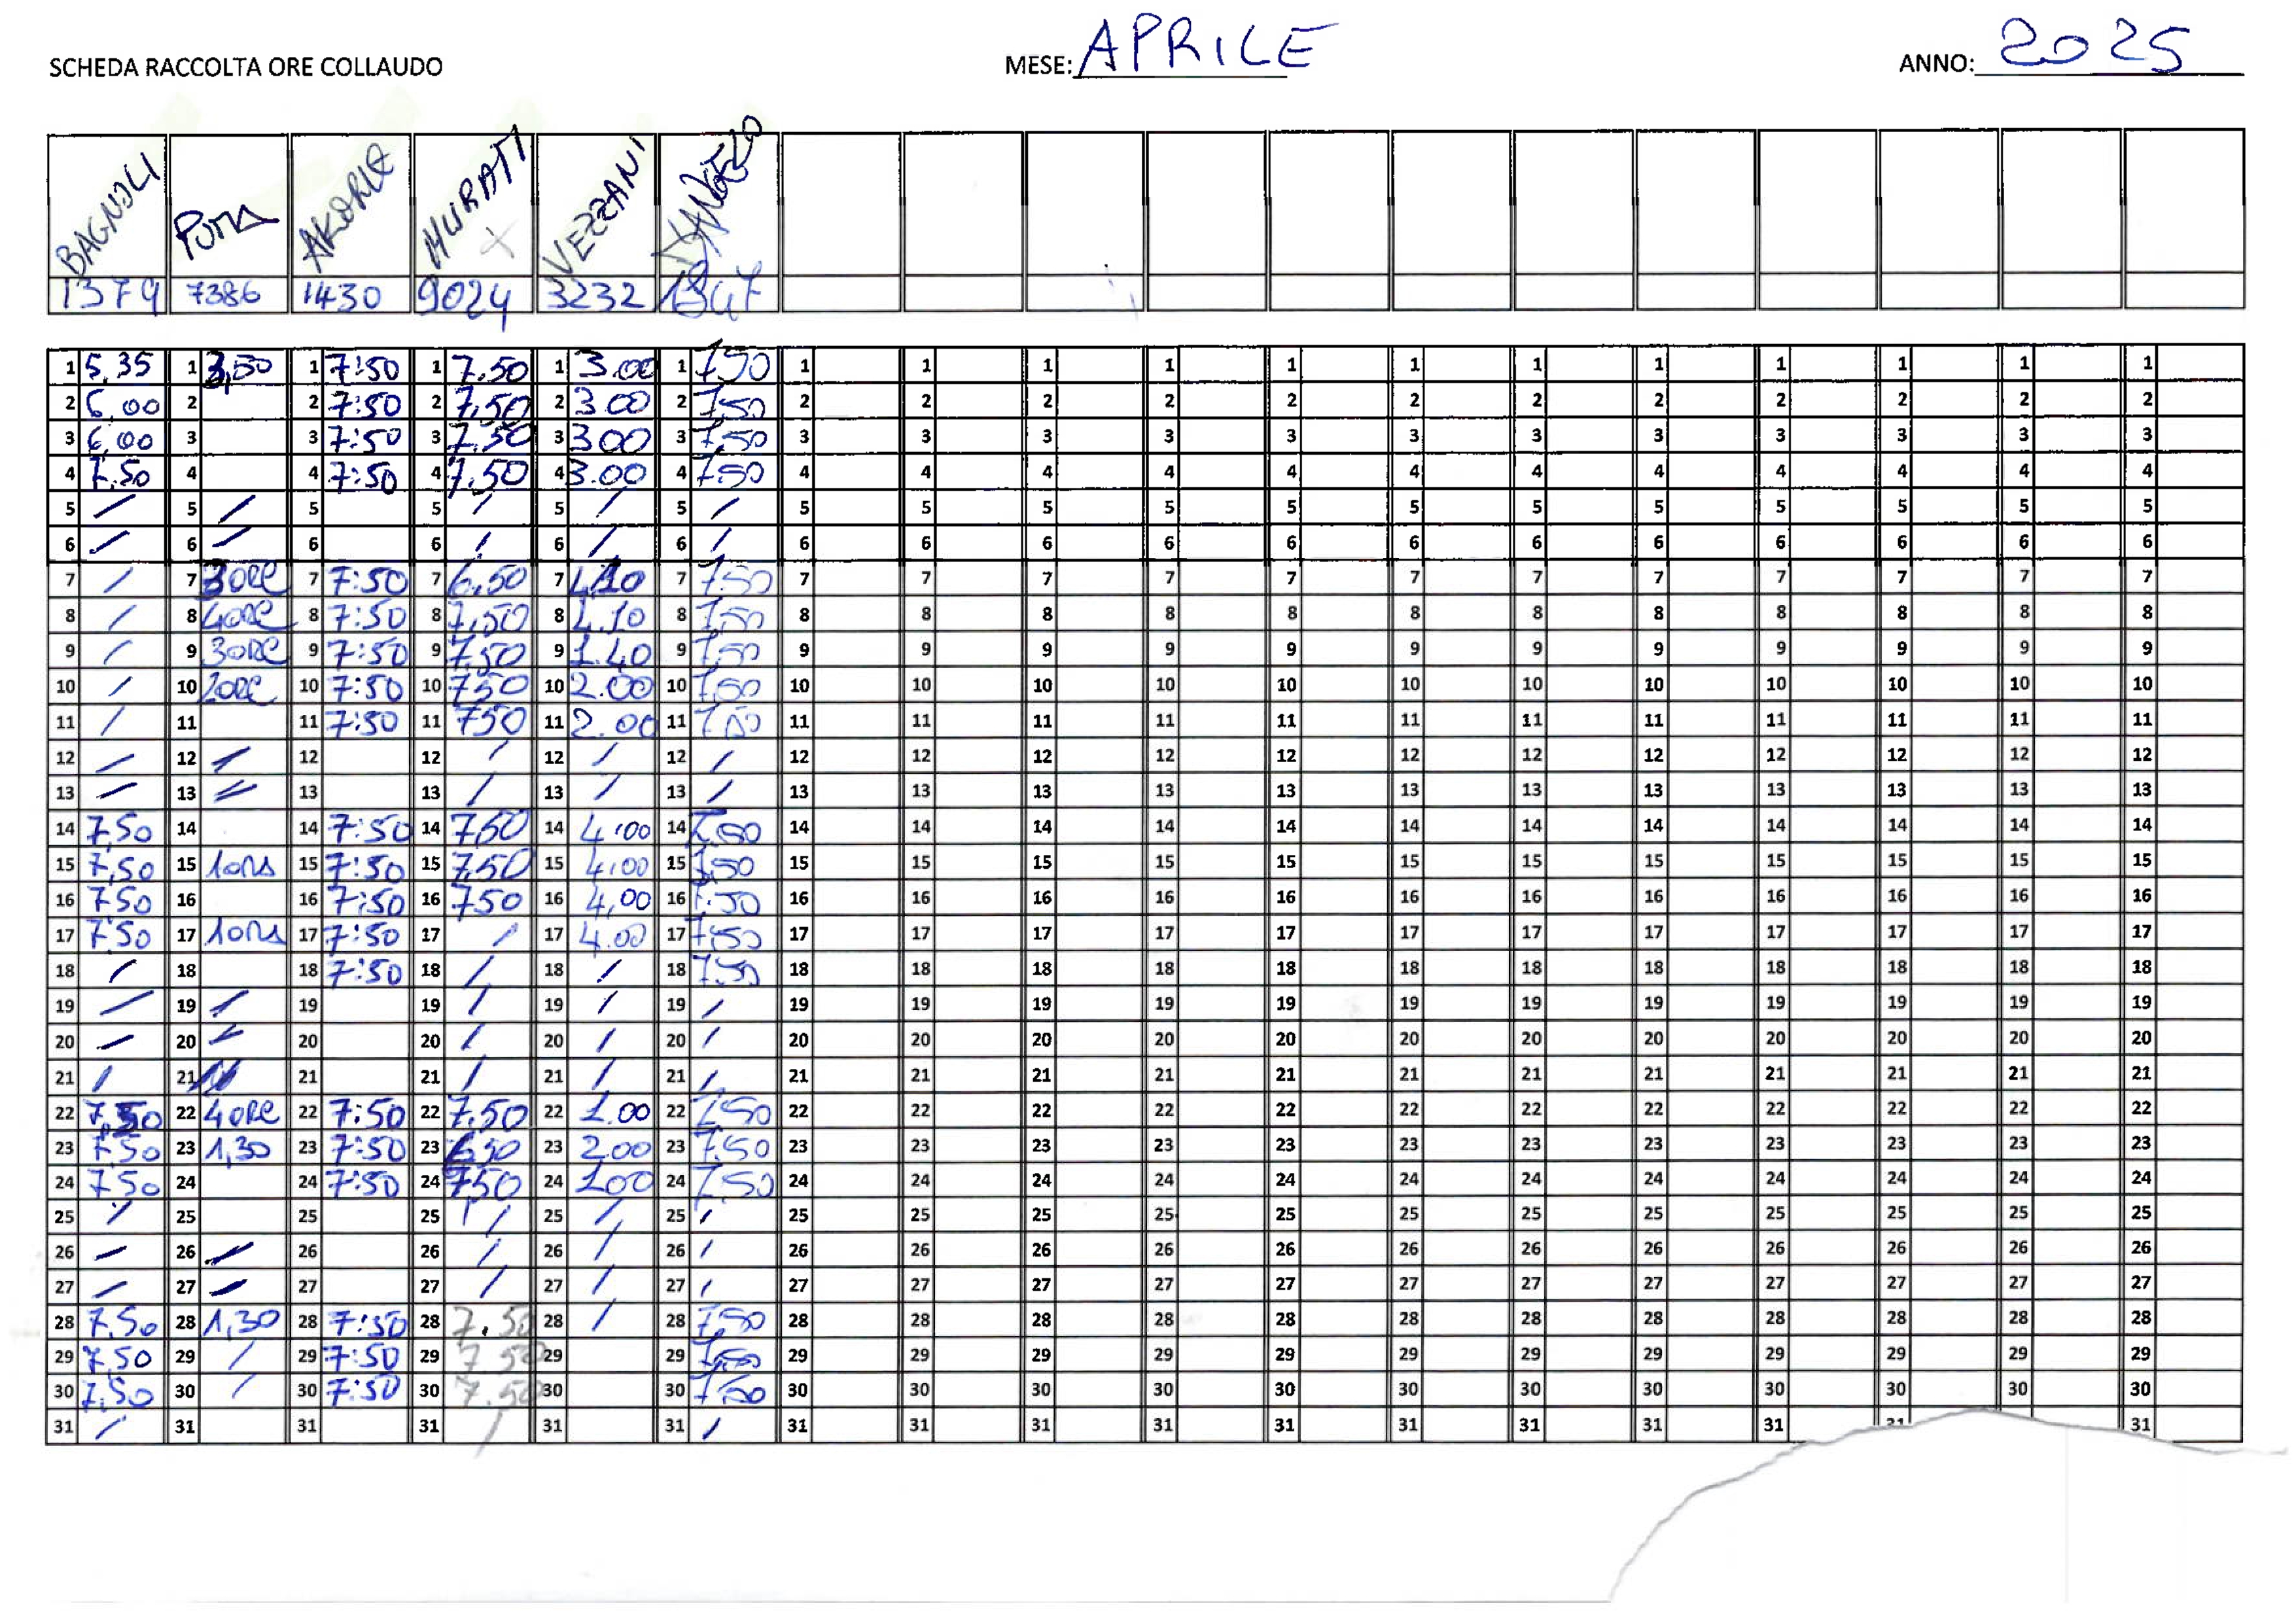 SCHEDA RACCOLTA ORE COLLAUDO MESE: APRILE ANNO: 2025
BAGNOLI PUMA AKORLE MURATI VEZZANI
1379 7386 1430 9024 3232
1 5.35 1 3,50 1 7:50 1 7.50 1 3.00 1 7.50 1 1 1 1 1 1 1 1 1 1 1 1
2 6.00 2 2 7:50 2 7,50 2 3.00 2 7.50 2 2 2 2 2 2 2 2 2 2 2 2
3 6,00 3 3 7:50 3 7.50 3 3.00 3 7.50 3 3 3 3 3 3 3 3 3 3 3 3
4 7.50 4 4 7:50 4 7.50 4 3.00 4 7.50 4 4 4 4 4 4 4 4 4 4 4 4
5 / 5 / 5 5 / 5 / 5 / 5 5 5 5 5 5 5 5 5 5 5 5
6 / 6 / 6 6 / 6 / 6 / 6 6 6 6 6 6 6 6 6 6 6 6
7 / 7 3ORE 7 7:50 7 6.50 7 7 7.50 7 7 7 7 7 7 7 7 7 7 7 7
8 / 8 4ORE 8 7:50 8 7,50 8 1.10 8 7,50 8 8 8 8 8 8 8 8 8 8 8 8
9 / 9 3ORE 9 7:50 9 7.50 9 1.40 9 7,50 9 9 9 9 9 9 9 9 9 9 9 9
10 / 10 2ORE 10 7:50 10 7.50 10 2.00 10 7.50 10 10 10 10 10 10 10 10 10 10 10 10
11 / 11 11 7:50 11 750 11 2.00 11 7.50 11 11 11 11 11 11 11 11 11 11 11 11
12 / 12 / 12 12 / 12 / 12 / 12 12 12 12 12 12 12 12 12 12 12 12
13 / 13 / 13 13 / 13 / 13 / 13 13 13 13 13 13 13 13 13 13 13 13
14 7,50 14 14 7:50 14 7,50 14 4,00 14 7.50 14 14 14 14 14 14 14 14 14 14 14 14
15 7,50 15 1ORA 15 7:50 15 7,50 15 4,00 15 7.50 15 15 15 15 15 15 15 15 15 15 15 15
16 7.50 16 16 7:50 16 750 16 4,00 16 7.50 16 16 16 16 16 16 16 16 16 16 16 16
17 7.50 17 1ORA 17 7:50 17 / 17 4.00 17 7.50 17 17 17 17 17 17 17 17 17 17 17 17
18 / 18 18 7:50 18 / 18 / 18 7.50 18 18 18 18 18 18 18 18 18 18 18 18
19 / 19 / 19 19 / 19 / 19 / 19 19 19 19 19 19 19 19 19 19 19 19
20 / 20 / 20 20 / 20 / 20 / 20 20 20 20 20 20 20 20 20 20 20 20
21 / 21 21 21 / 21 / 21 / 21 21 21 21 21 21 21 21 21 21 21 21
22 7,50 22 4ORE 22 7:50 22 7.50 22 1.00 22 7.50 22 22 22 22 22 22 22 22 22 22 22 22
23 7.50 23 1,30 23 7:50 23 6.50 23 2.00 23 7.50 23 23 23 23 23 23 23 23 23 23 23 23
24 7.50 24 24 7:50 24 750 24 1.00 24 7.50 24 24 24 24 24 24 24 24 24 24 24 24
25 / 25 25 25 / 25 / 25 / 25 25 25 25 25 25 25 25 25 25 25 25
26 / 26 / 26 26 / 26 / 26 / 26 26 26 26 26 26 26 26 26 26 26 26
27 / 27 / 27 27 / 27 / 27 / 27 27 27 27 27 27 27 27 27 27 27 27
28 7.50 28 1,30 28 7:50 28 7.50 28 / 28 7.50 28 28 28 28 28 28 28 28 28 28 28 28
29 7,50 29 / 29 7:50 29 7.50 29 29 7.50 29 29 29 29 29 29 29 29 29 29 29 29
30 7.50 30 / 30 7:50 30 7.50 30 30 7.50 30 30 30 30 30 30 30 30 30 30 30 30
31 / 31 31 31 / 31 31 / 31 31 31 31 31 31 31 31 31 31 31